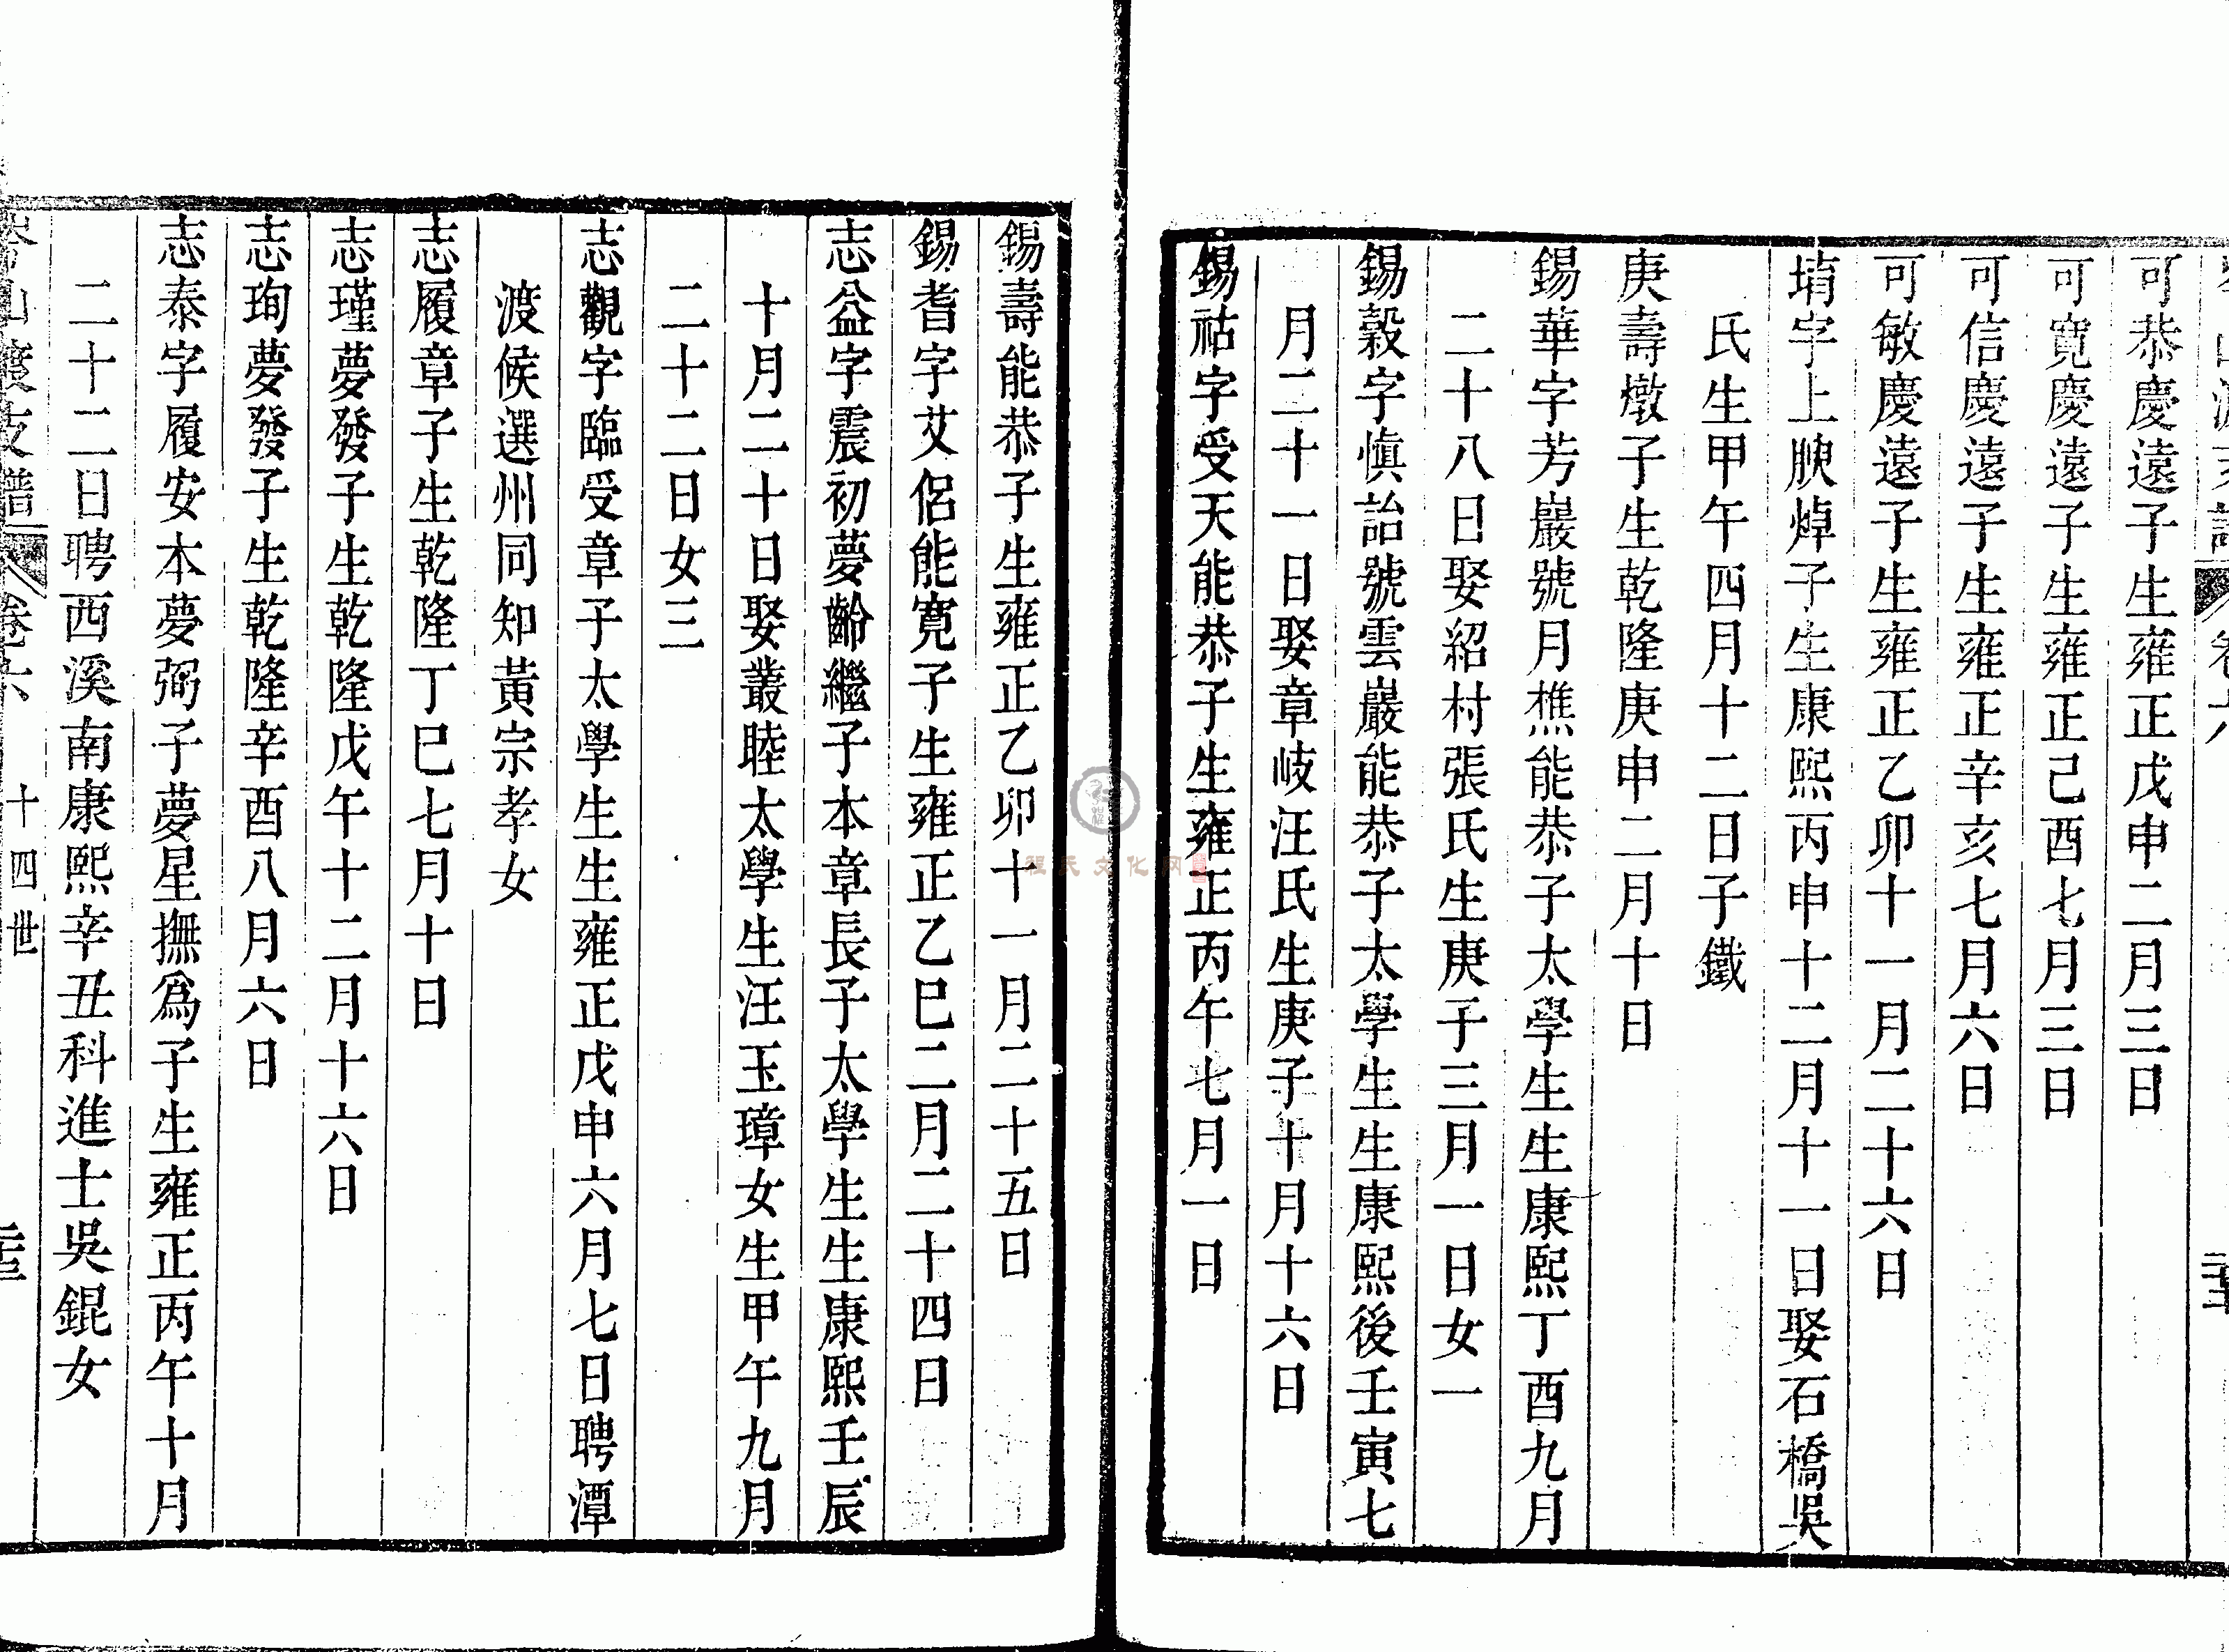 卷六
可恭慶遠子生雍正戊申二月三日
可寬慶遠子生雍正己酉七月三日
可信慶遠子生雍正辛亥七月六日
可敏慶遠子生雍正乙卯十一月二十六日
堉字上腴焯子生康熙丙申十二月十一日娶石橋吳
氏生甲午四月十二日子鐵
庚壽燉子生乾隆庚申二月十日
錫華字芳巖號月樵能恭子太學生生康熙丁酉九月
二十八日娶紹村張氏生庚子三月一日女一
錫穀字慎詒號雲巖能恭子太學生生康熙後壬寅七
月二十一日娶章岐汪氏生庚子十月十六日
錫祜字受天能恭子生雍正丙午七月一日
錫壽能恭子生雍正乙卯十一月二十五日
錫耆字艾侶能寬子生雍正乙巳二月二十四日
志益字震初夢齡繼子本章長子太學生生康熙壬辰
十月二十日娶叢睦太學生汪玉璋女生甲午九月
二十二日女三
志觀字臨受章子太學生生雍正戊申六月七日聘潭
渡候選州同知黃宗孝女
志履章子生乾隆丁巳七月十日
志瑾夢發子生乾隆戊午十二月十六日
志珣夢發子生乾隆辛酉八月六日
志泰字履安本夢弼子夢星撫爲子生雍正丙午十月
二十二日聘西溪南康熙辛丑科進士吳錕女
山渡支譜 卷六 十四世
程氏文化网